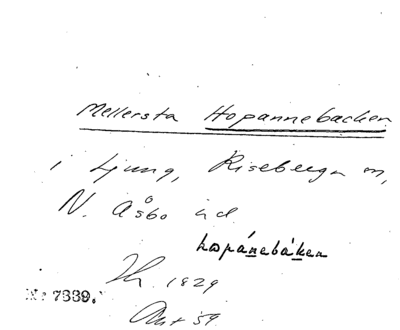 Mellersta Hopannebacken
i Ljung, Riseberga sn,
N. Åsbo hd.
hopánebáken
1829
№ 7339.